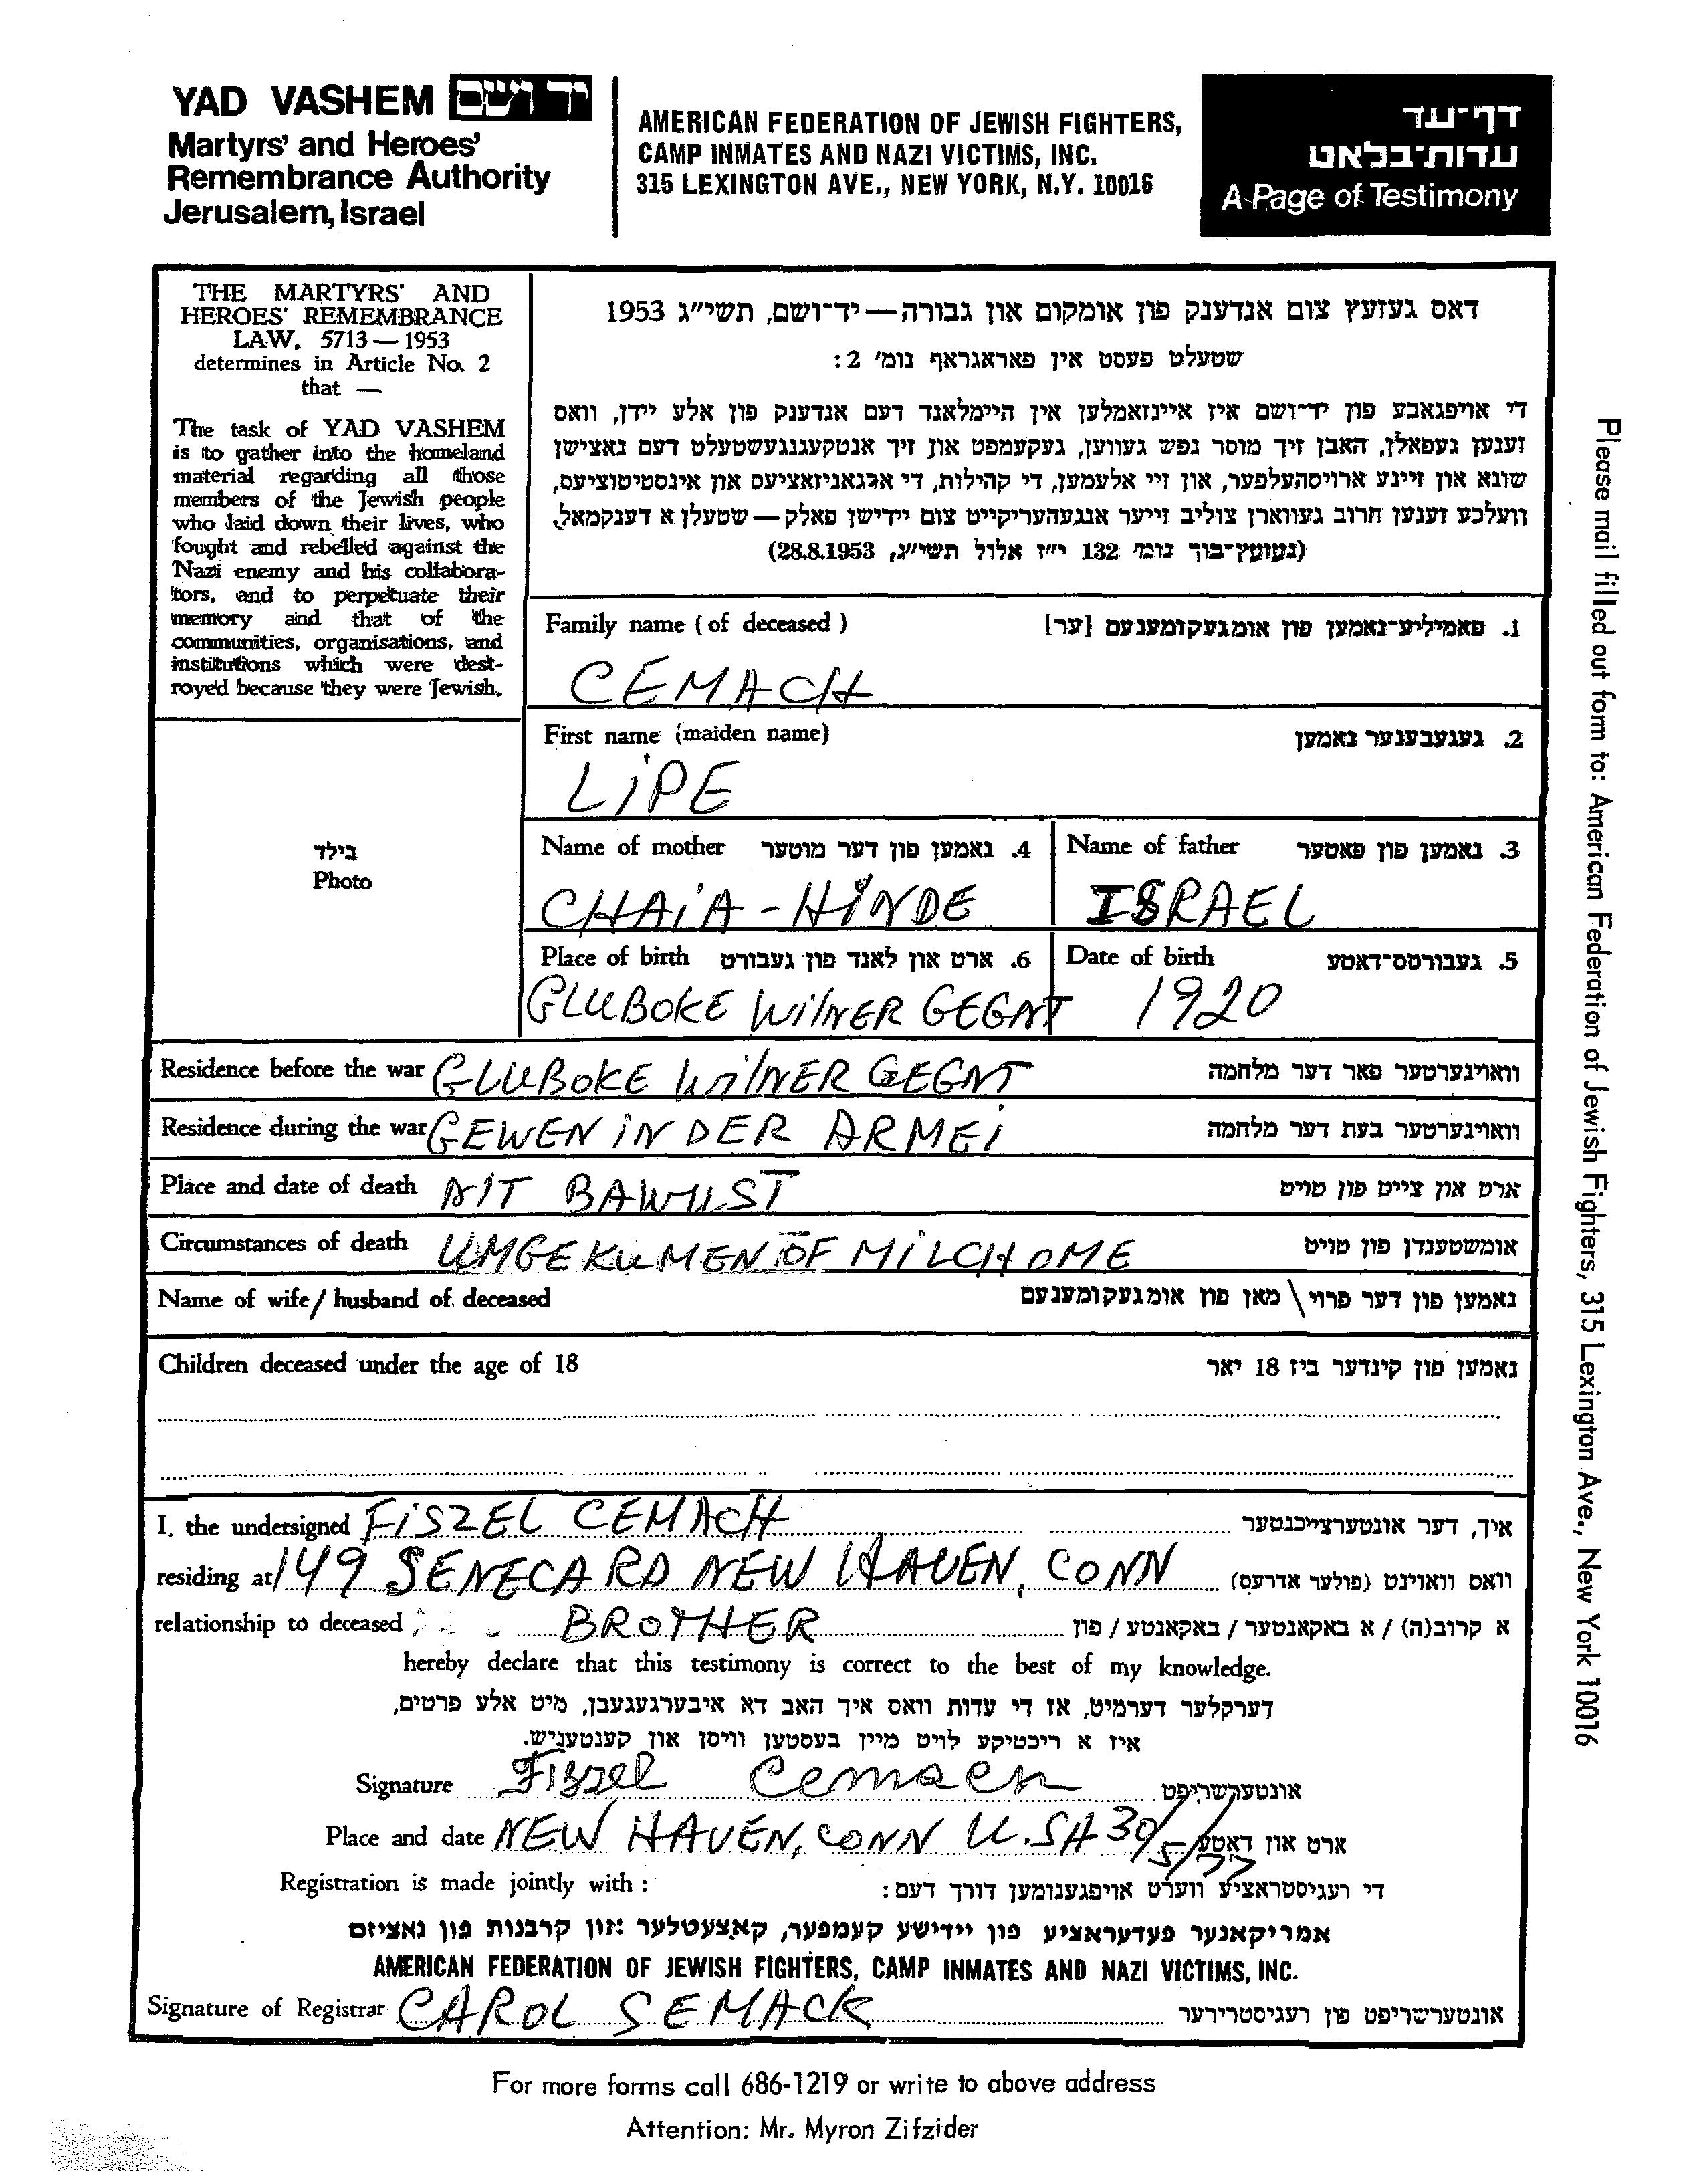 YAD VASHEM יד ושם
Martyrs' and Heroes'
Remembrance Authority
Jerusalem, Israel
AMERICAN FEDERATION OF JEWISH FIGHTERS,
CAMP INMATES AND NAZI VICTIMS, INC.
315 LEXINGTON AVE., NEW YORK, N.Y. 10016
דף-עד
עדות-בלאט
A Page of Testimony
THE MARTYRS' AND
HEROES' REMEMBRANCE
LAW, 5713—1953
determines in Article No. 2
that —
The task of YAD VASHEM
is to gather into the homeland
material regarding all those
members of the Jewish people
who laid down their lives, who
fought and rebelled against the
Nazi enemy and his collabora-
tors, and to perpetuate their
memory and that of the
communities, organisations, and
institutions which were dest-
royed because they were Jewish.
דאס געזעץ צום אנדענק פון אומקום און גבורה—יד-ושם, תשי"ג 1953
שטעלט פעסט אין פאראגראף נומ' 2:
די אויפגאבע פון יד-ושם איז איינזאמלען אין היימלאנד דעם אנדענק פון אלע יידן, וואס
זענען געפאלן, האבן זיך מוסר נפש געווען, געקעמפט און זיך אנטקעגנגעשטעלט דעם נאצישן
שונא און זיינע ארויסהעלפער, און זיי אלעמען, די קהילות, די ארגאניזאציעס און אינסטיטוציעס,
וועלכע זענען חרוב געווארן צוליב זייער אנגעהעריקייט צום יידישן פאלק—שטעלן א דענקמאל.
(געזעץ-בוך נומ' 132 י"ז אלול תשי"ג, 28.8.1953)
Family name (of deceased) 1. פאמיליע-נאמען פון אומגעקומענעם [ער]
CEMACH
First name (maiden name) 2. געגעבענער נאמען
LiPE
בילד
Photo
Name of mother 4. נאמען פון דער מוטער
CHAiA - HiNDE
Name of father 3. נאמען פון פאטער
ISRAEL
Place of birth 6. ארט און לאנד פון געבורט
GLUBOKE WilNER GEGNT
Date of birth 5. געבורטס-דאטע
1920
Residence before the war GLUBOKE WilNER GEGNT וואוינערטער פאר דער מלחמה
Residence during the war GEWEN iN DER ARMEi וואוינערטער בעת דער מלחמה
Place and date of death NIT BAWUST ארט און צייט פון טויט
Circumstances of death UMGEKUMEN OF MiLCHOME אומשטענדן פון טויט
Name of wife / husband of deceased נאמען פון דער פרוי \ מאן פון אומגעקומענעם
Children deceased under the age of 18 נאמען פון קינדער ביז 18 יאר
I, the undersigned FiSZEL CEMACH איך, דער אונטערצייכנטער
residing at 149 SENECA RD NEW HAVEN, CONN וואס וואוינט (פולער אדרעס)
relationship to deceased BROTHER א קרוב(ה) / א באקאנטער / באקאנטע / פון
hereby declare that this testimony is correct to the best of my knowledge.
דערקלער דערמיט, אז די עדות וואס איך האב דא איבערגעגעבן, מיט אלע פרטים,
איז א ריכטיקע לויט מיין בעסטען וויסן און קענטעניש.
Signature Fiszel Cemach אונטערשריפט
Place and date NEW HAVEN, CONN U.SA 30/5/77 ארט און דאטע
Registration is made jointly with : די רעגיסטראציע ווערט אויפגענומען דורך דעם:
אמריקאנער פעדעראציע פון יידישע קעמפער, קאצעטלער און קרבנות פון נאציזם
AMERICAN FEDERATION OF JEWISH FIGHTERS, CAMP INMATES AND NAZI VICTIMS, INC.
Signature of Registrar CAROL SEMACK אונטערשריפט פון רעגיסטרירער
For more forms call 686-1219 or write to above address
Attention: Mr. Myron Zifzider
Please mail filled out form to: American Federation of Jewish Fighters, 315 Lexington Ave., New York 10016